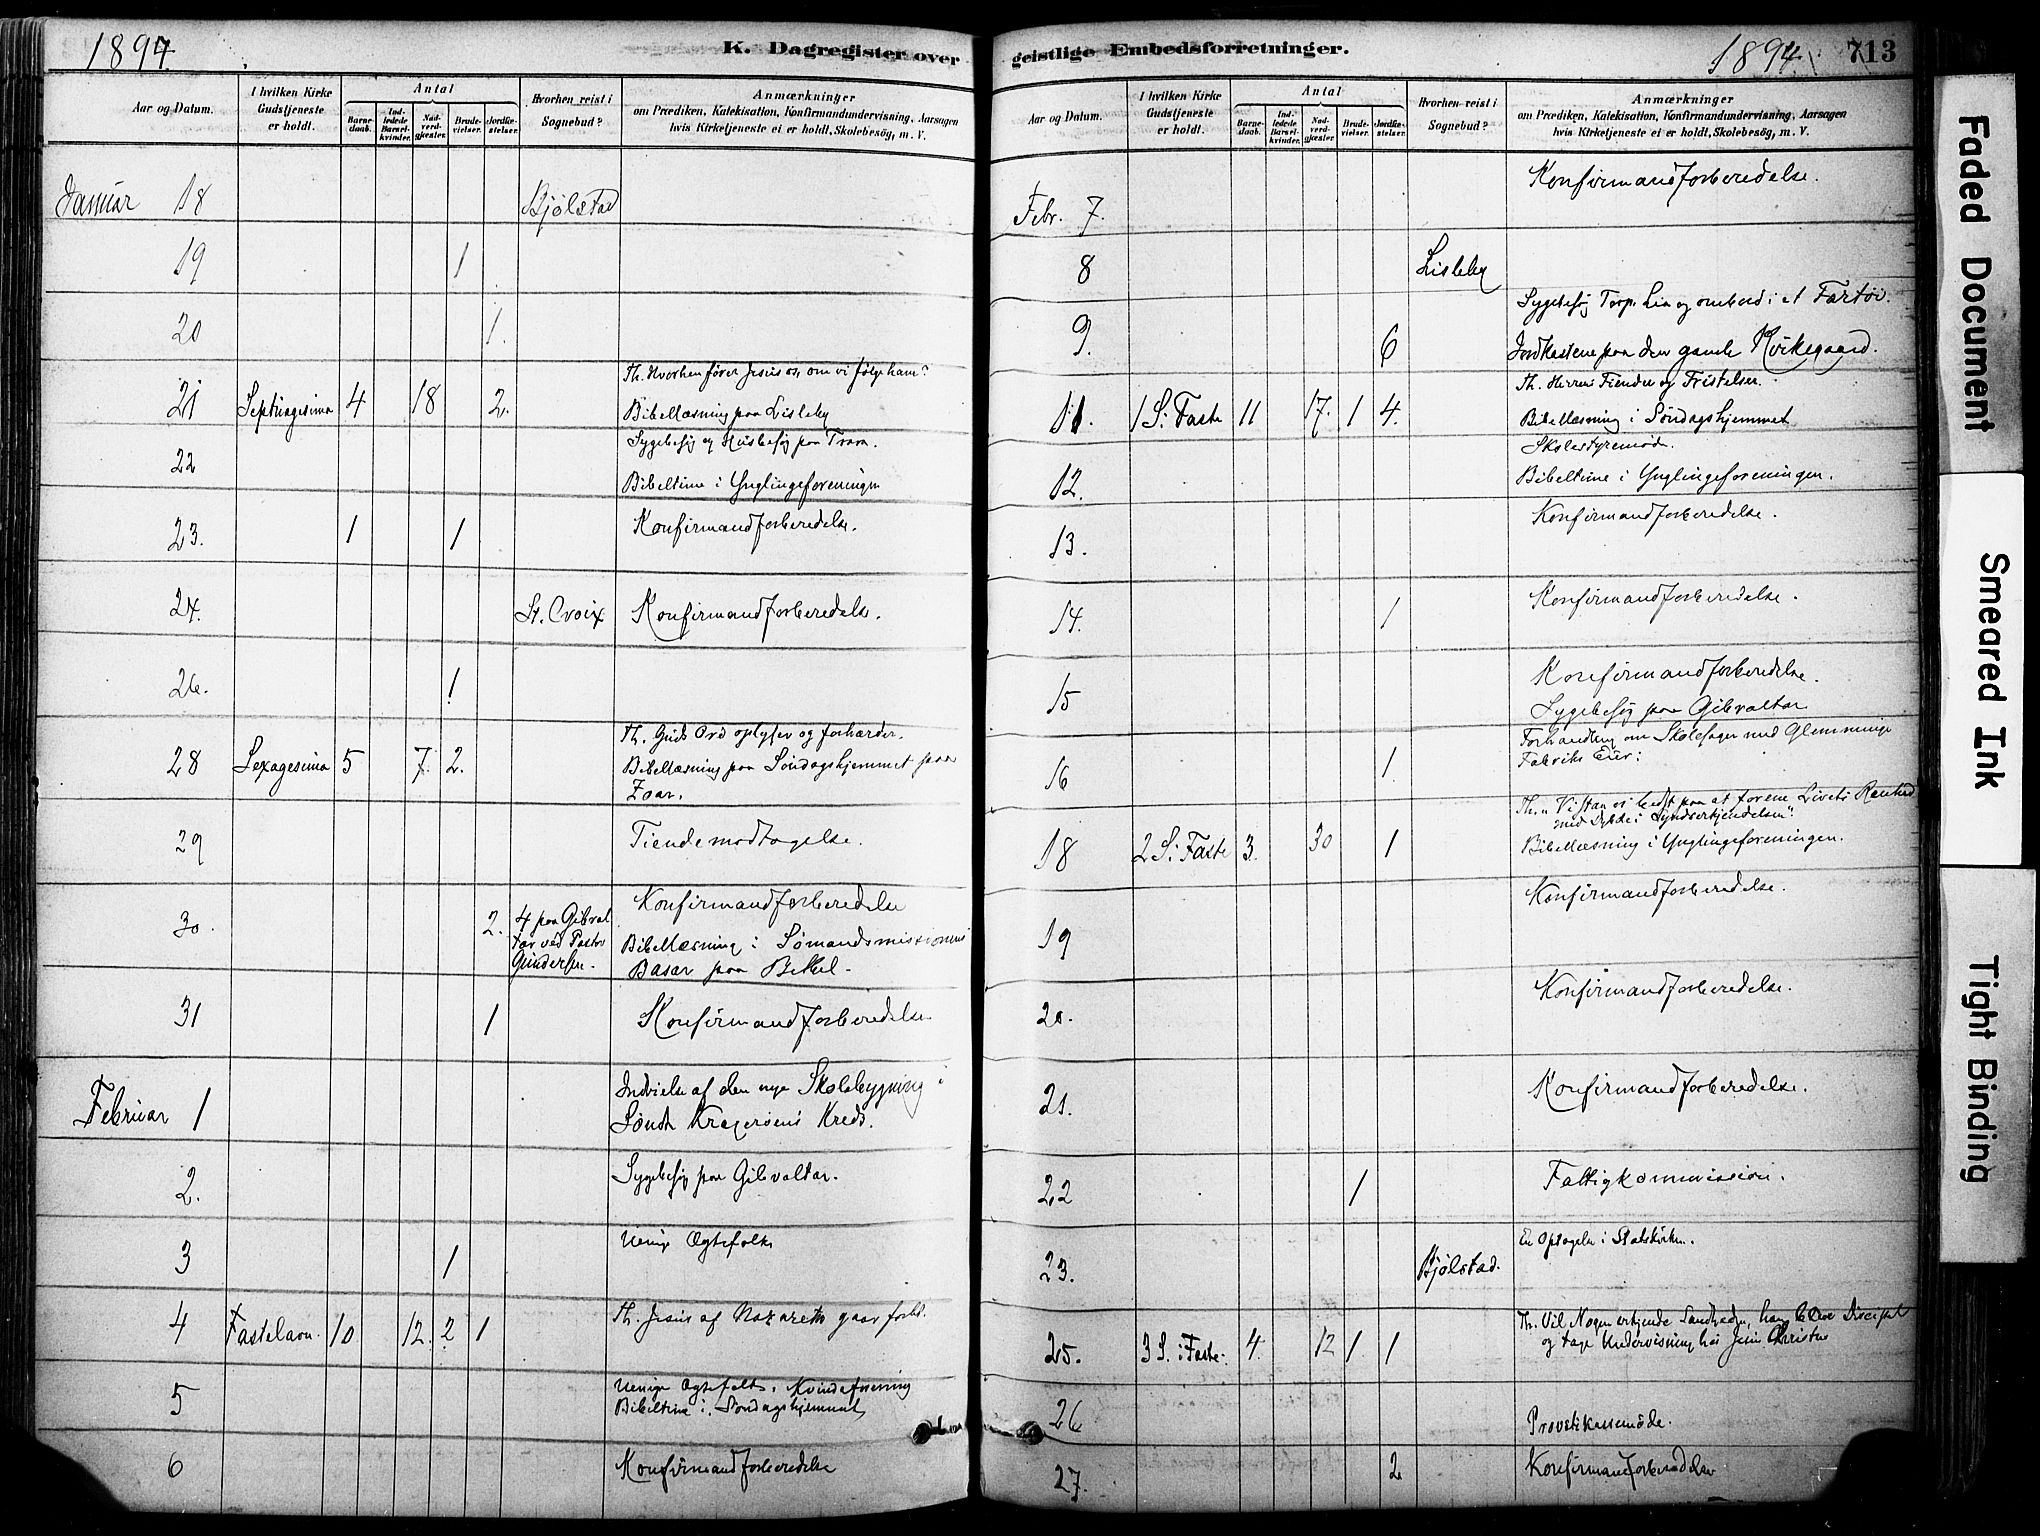 1894.
K. Dagregister over
Aar og Datum.
I hvilken Kirke Gudstjeneste er holdt.
Antal
Barne-daab.
Ind-ledede Barsel-kvinder.
Nad-verd-gjester.
Brude-vielser.
Jordfæ-stelser.
Hvorhen reist i Sognebud?
Anmærkninger
om Prædiken, Katekisation, Konfirmandundervisning, Aarsagen
hvis Kirketjeneste ei er holdt, Skolebesøg, m. V.
Januar 18 Bjølstad
19 1
20 1.
21 Septuagesima 4 18 2. Th. Hvorhen fører Jesus os, om vi følge ham?
Bibellæsning paa Lisleby
22 Sygebesøg og Husbesøg paa Trara.
Bibeltime i Ynglingeforeningen
23. 1 1 Konfirmandforberedelse.
24. St. Croix Konfirmandforberedelse.
26. 1
28 Sexagesima 5 7. 2. Th. Guds Ord oplyser og forhærder.
Bibellæsning paa Søndagshjemmet paa
Zoar.
29 Tiendemodtagelse.
30. 2. 4 paa Gibral
tar ved Pastor
Gundersen.
Konfirmandforberedelse
Bibellæsning i Sømandsmissionens
Basar paa Bethel.
31 1 Konfirmandforberedelse
Februar 1 Indvielse af den nye Skolebygning i
Søndr Kragerøens Kreds.
2. Sygebesøg paa Gibraltar.
3 1 Uenige Ægtefolk
4 Fastelavn. 10 12. 2 1 Th. Jesus af Nazareth gaar forbi.
5 Uenige Ægtefolk. Kvindeforening
Bibeltime i Søndagshjemmet
6 Konfirmandforberedelse
geistlige Embedsforretninger.
1894.
713
Aar og Datum.
I hvilken Kirke Gudstjeneste er holdt.
Antal
Barne-daab.
Ind-ledede Barsel-kvinder.
Nad-verd-gjester.
Brude-vielser.
Jordfæ-stelser.
Hvorhen reist i Sognebud?
Anmærkninger
om Prædiken, Katekisation, Konfirmandundervisning, Aarsagen
hvis Kirketjeneste ei er holdt, Skolebesøg, m. V.
Febr. 7. Konfirmandforberedelse.
8 Lisleby
9. 6 Sygebesøg Torp, Lia og ombord i et Fartøi.
Jordfæstelse paa den gamle Kirkegaard.
11. 1 S. i Faste 11 17. 1 4. Th. Herrens Fiender og Fristelser.
Bibellæsning i Søndagshjemmet
12. Skolestyremøde.
Bibeltime i Ynglingeforeningen.
13. Konfirmandforberedelse.
14. 1 Konfirmandforberedelse.
15 Konfirmandforberedelse.
Sygebesøg paa Gibraltar
16 1. Forhandling om Skolesager med Glemminge
Fabriks Eier.
18 2 S. i Faste 3. 30 1 Th. "Vi staa os bedst paa at forene Livets Renhed
med Dybde i Syndserkjendelsen".
Bibellæsning i Ynglingeforeningen.
19 Konfirmandforberedelse.
20. Konfirmandforberedelse.
21. Konfirmandforberedelse.
22 1 Fattigkommission.
23. Bjølstad. En Optagelse i Statskirken.
25. 3 S. i Faste. 4. 12 1. 1 Th. Vil Nogen erkjende Sandheden, han blive Discipel
og tage Undervisning hos Jesus Christus
26 Provstikassemøde.
27. 2 Konfirmandforberedelse
Faded Document
Smeared Ink
Tight Binding